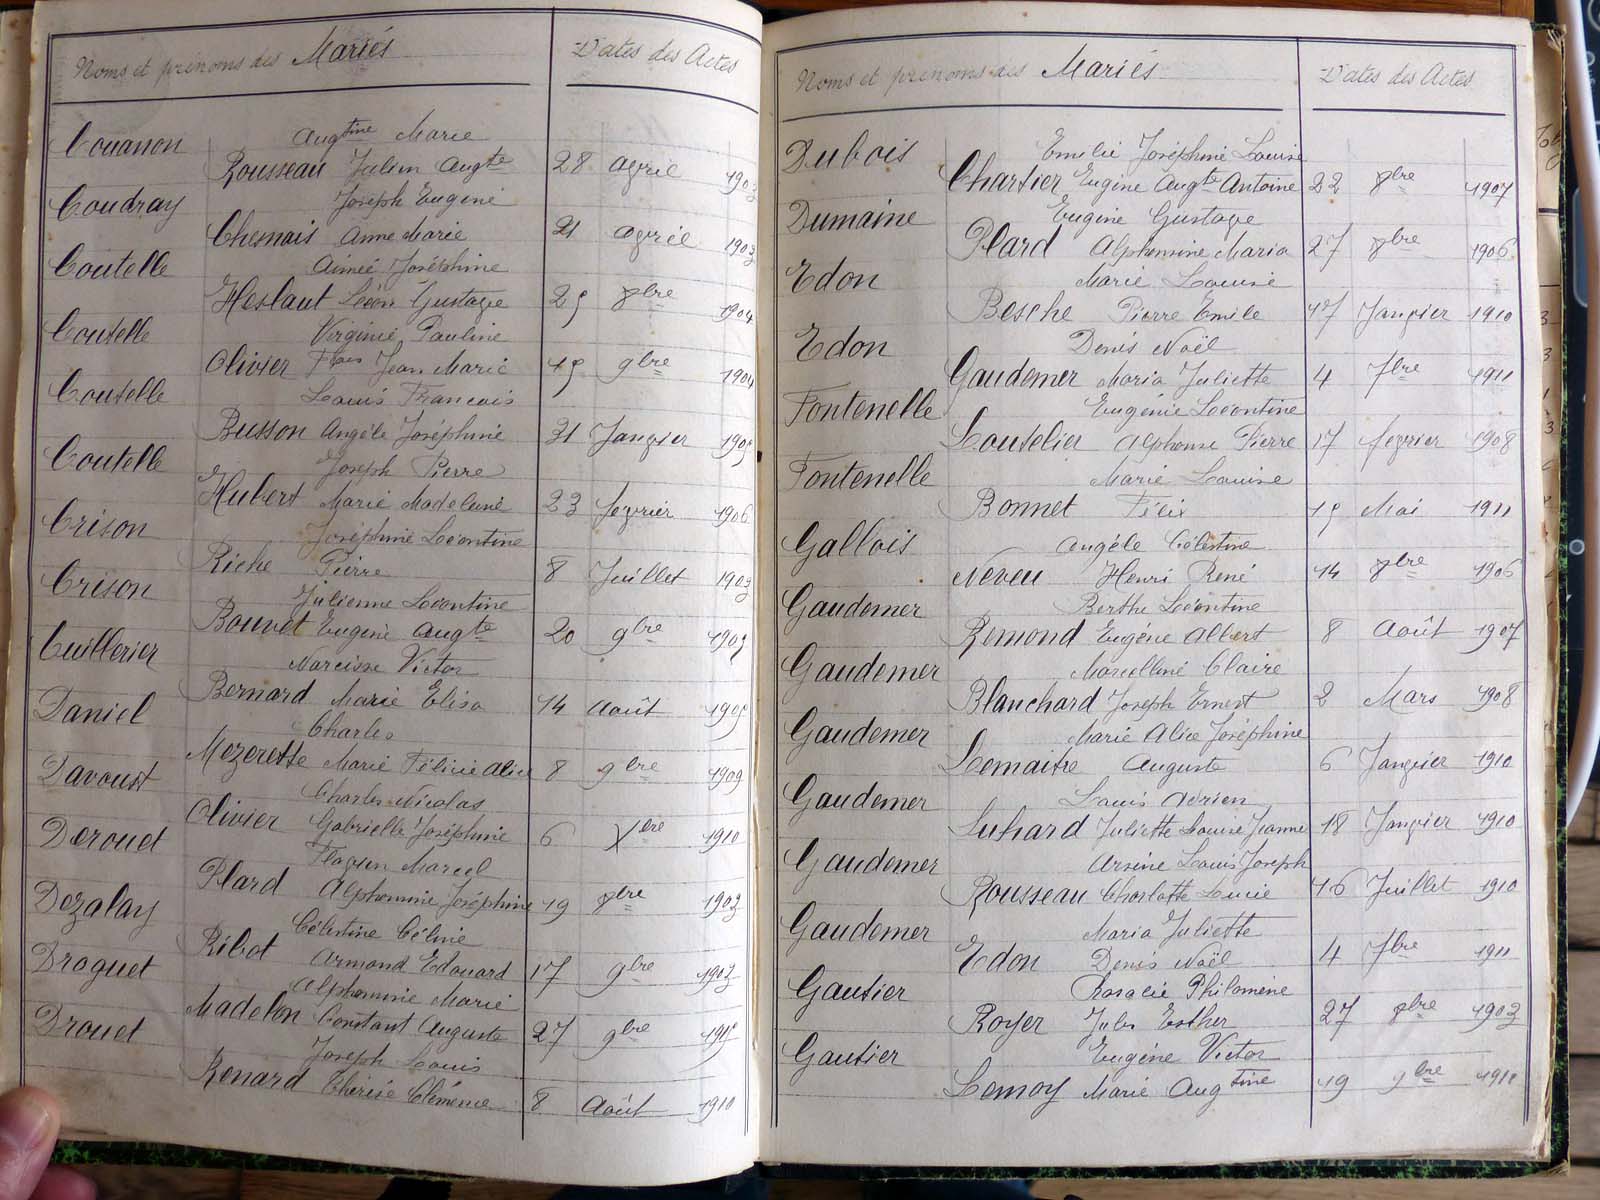 Noms et prénoms des Mariés Dates des Actes
Couanon Augtine Marie
Rousseau Julien Augte 28 avril 1903
Coudray Joseph Eugène
Chesnais Anne Marie 21 avril 1903
Coutelle Aimée Joséphine
Heslaut Léon Gustave 25 8bre 1904
Coutelle Virginie Pauline
Olivier Fçois Jean Marie 15 9bre 1904
Coutelle Louis François
Busson Angèle Joséphine 31 Janvier 1905
Coutelle Joseph Pierre
Hubert Marie Madeleine 23 février 1906
Crison Joséphine Léontine
Riche Pierre 8 Juillet 1903
Crison Julienne Léontine
Bouvet Eugène Augte 20 9bre 1905
Cuillerier Narcisse Victor
Bernard Marie Elisa 14 Août 1905
Daniel Charles
Mezerette Marie Félicie Alice 8 9bre 1909
Davoust Charles Nicolas
Olivier Gabrielle Joséphine 6 Xbre 1910
Derouet Marcel
Plard Alphonsine Joséphine 19 8bre 1903
Dezalay Célestine Céline
Ribot Armand Edouard 17 9bre 1903
Draguet Alphonsine Marie
Madelon Constant Auguste 27 9bre
Drouet Joseph Louis
Renard Clémence 8 Août 1910
Noms et prénoms des Mariés Dates des Actes
Dubois Emilie Joséphine Louise
Chartier Eugène Augte Antoine 22 8bre 1907
Dumaine Eugène Gustave
Plard Alphonsine Maria 27 8bre 1906
Edon Marie Louise
Besche Pierre Emile 17 Janvier 1910
Edon Denis Noël
Gaudemer Maria Juliette 4 7bre 1911
Fontenelle Eugénie Léontine
Loutelier Alphonse Pierre 17 février 1908
Fontenelle Marie Louise
Bonnet Félix 15 Mai 1911
Gallois Angèle Célestine
Neveu Henri René 14 8bre 1906
Gaudemer Berthe Léontine
Remond Eugène Albert 8 Août 1907
Gaudemer Marcelline Claire
Blanchard Joseph Ernest 2 Mars 1908
Gaudemer Marie Alice Joséphine
Lemaitre Auguste 6 Janvier 1910
Gaudemer Louis Adrien
Luhard Juliette Louise Jeanne 18 Janvier 1910
Gaudemer Arsène Louis Joseph
Rousseau Charlotte Lucie 16 Juillet 1910
Gaudemer Maria Juliette
Edon Denis Noël 4 7bre 1911
Gautier Rosalie Philomène
Royer Jules Esther 27 8bre 1903
Gautier Eugène Victor
Lemoy Marie Augtine 19 9bre 1911